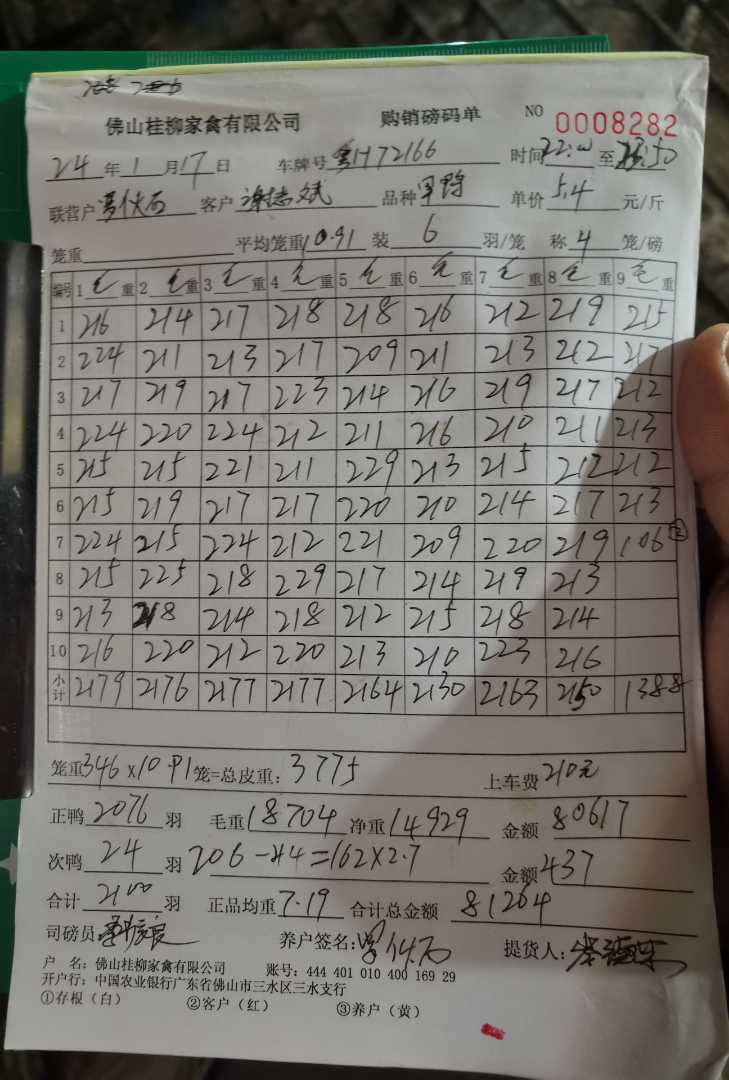 佛山桂柳家禽有限公司 购销磅码单 NO 0008282
24年1月17日 车牌号 粤H72166 时间 22:00 至 23:50
联营户 客户 谢志斌 品种 单价 5.4 元/斤
笼重 平均笼重 10.91 装 6 羽/笼 称 4 笼/磅
编号 1 毛重 2 毛重 3 毛重 4 毛重 5 毛重 6 毛重 7 毛重 8 毛重 9 毛重
1 216 214 217 218 218 216 212 219 215
2 224 211 213 217 209 211 213 212 217
3 217 219 217 223 214 216 219 217 212
4 224 220 224 212 211 216 210 211 213
5 215 215 221 211 229 213 215 212 212
6 215 219 217 217 220 210 214 217 213
7 224 215 224 212 221 209 220 219 106 ②
8 215 225 218 229 217 214 219 213
9 213 218 214 218 212 215 218 214
10 216 220 212 220 213 210 223 216
小计 2179 2176 2177 2177 2164 2130 2163 2150 1388
笼重 346 x 10.91 笼=总皮重: 3775 上车费 210元
正鸭 2076 羽 毛重 18704 净重 14929 金额 80617
次鸭 24 羽 206-44=162x2.7 金额 437
合计 2100 羽 正品均重 7.19 合计总金额 81264
司磅员: 养户签名: 提货人:
户 名: 佛山桂柳家禽有限公司 账号: 444 401 010 400 169 29
开户行: 中国农业银行广东省佛山市三水区三水支行
①存根(白) ②客户(红) ③养户(黄)